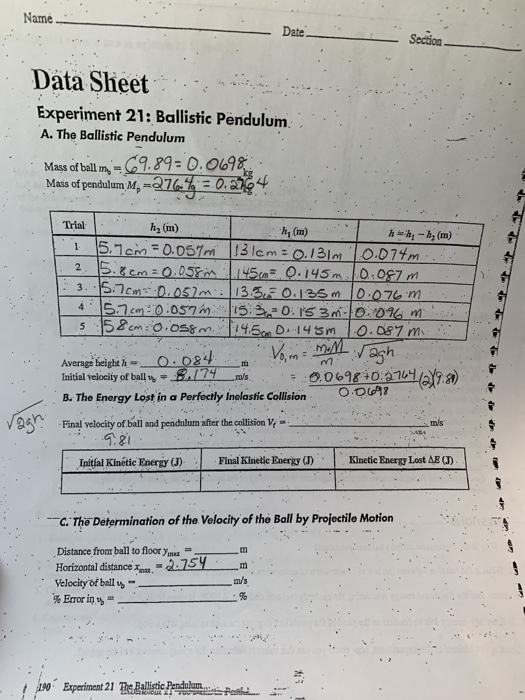 Name
Date
Section
Data Sheet
Experiment 21: Ballistic Pendulum
A. The Ballistic Pendulum
Mass of ball m_b = 69.8g = 0.0698 kg
Mass of pendulum M_p = 276.4g = 0.2764 kg
Trial h₂ (m) h₁ (m) h = h₁ - h₂ (m)
1 5.7cm = 0.057m 131cm = 0.131m 0.074m
2 5.8cm = 0.058m 145cm = 0.145m 0.087m
3 5.7cm = 0.057m 13.5 = 0.135m 0.076m
4 5.7cm = 0.057m 15.3 = 0.153m 0.096m
5 5.8cm = 0.058m 14.5cm 0.145m 0.087m
Average height h = 0.084 m
V₀,m = m+M/m √2gh
Initial velocity of ball v_b = 8.174 m/s
= 0.0698+0.2764/0.0698 (2)(9.81)
B. The Energy Lost in a Perfectly Inelastic Collision
√2gh
Final velocity of ball and pendulum after the collision V_f = m/s
9.81
Initial Kinetic Energy (J) Final Kinetic Energy (J) Kinetic Energy Lost ΔE (J)
C. The Determination of the Velocity of the Ball by Projectile Motion
Distance from ball to floor y_max = m
Horizontal distance x_max = 2.754 m
Velocity of ball v_b = m/s
% Error in v_b = %
190 Experiment 21 The Ballistic Pendulum